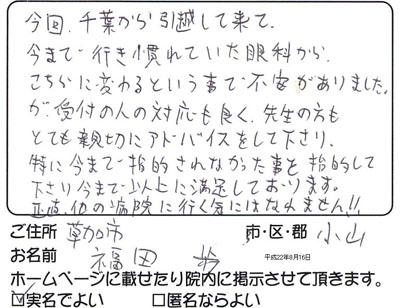 今回、千葉から引越して来て、
今まで行き慣れていた眼科から、
こちらに変わるという事で不安がありました
が、受付の人の対応も良く、先生の方も
とても親切にアドバイスをして下さり、
特に今まで指的されなかった事を指的して
下さり今まで以上に満足しております。
正直、他の病院に行く気にはなれません!!
ご住所 草加市 市・区・郡 小山
お名前 福田
平成22年8月16日
ホームページに載せたり院内に掲示させて頂きます。
☑実名でよい □匿名ならよい